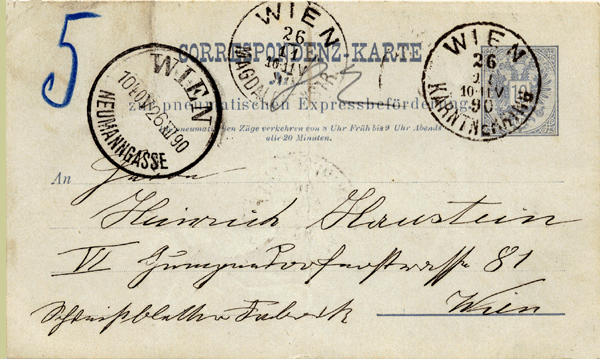 5
WIEN
26
11
10·11V
WIEN
26
11
10·11V
90
KÄRNTNERRING
CORRESPONDENZ-KARTE
zur pneumatischen Expressbeförderung
pneumatischen Züge verkehren von 8 Uhr Früh bis 9 Uhr Abends
alle 20 Minuten.
WIEN
26 XI 90
NEUMANNGASSE
An Herrn
Heinrich Haustein
VI Gumpendorferstrasse 81
Fabrik Wien